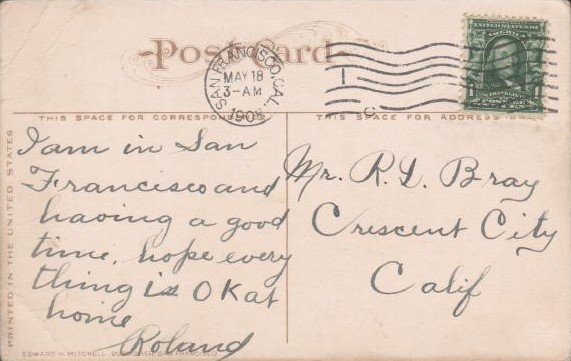 Post Card
SAN FRANCISCO, CAL.
MAY 18
3-AM
190
UNITED STATES OF
AMERICA
1 FRANKLIN 1
POSTAGE
THIS SPACE FOR CORRESPONDENCE
THIS SPACE FOR ADDRESS
PRINTED IN THE UNITED STATES
I am in San
Francisco and
having a good
time, hope every
thing is OK at
home
Roland
Mr. R. L. Bray
Crescent City
Calif
EDWARD H. MITCHELL, SAN FRANCISCO